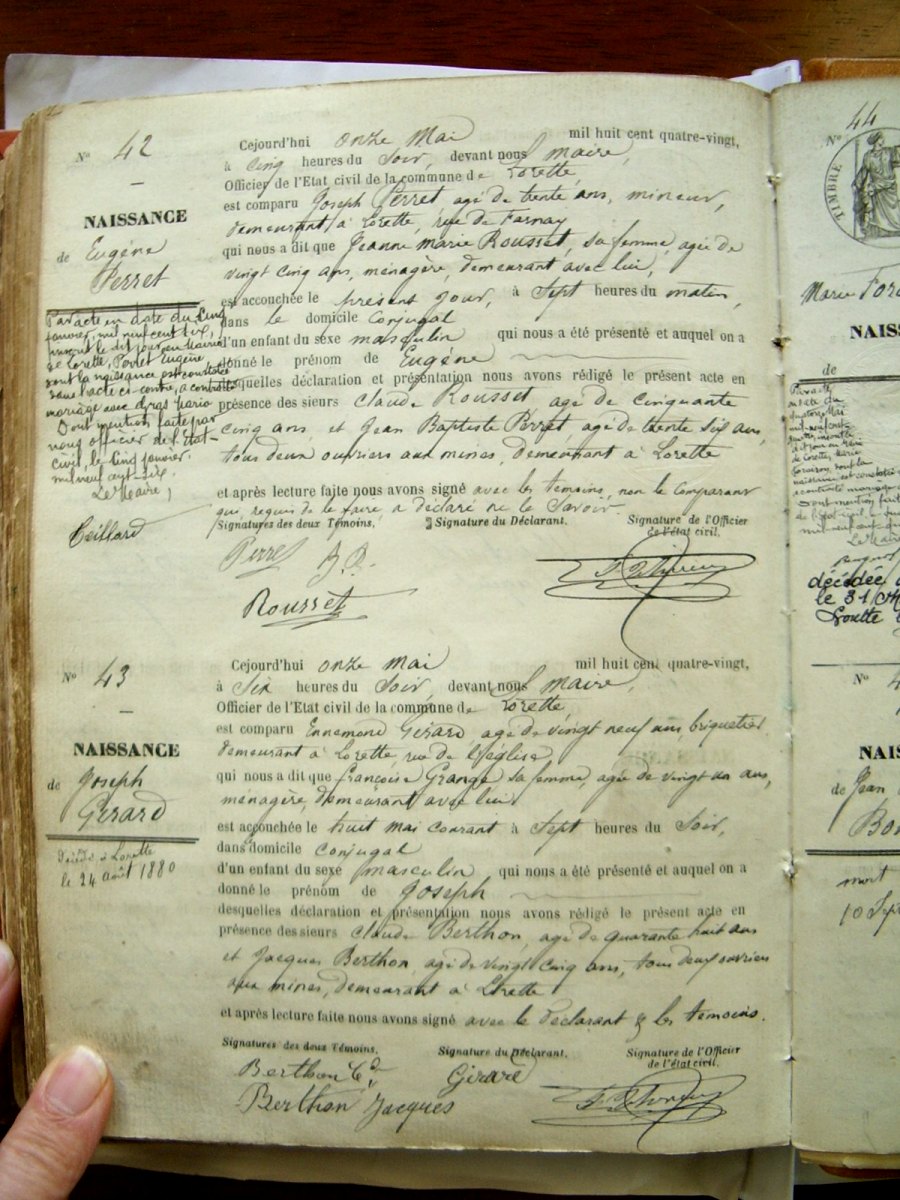 Nº 42
NAISSANCE
de Eugène
Perret
Par acte en date du cinq
janvier, mil neuf cent six,
inscrit le dit jour en Mairie
de Lorette, Perret Eugène
dont la naissance est constatée
dans l'acte ci-contre, a contracté
mariage avec Marie
Dont mention faite par
nous officier de l'Etat-
civil, le cinq janvier
mil neuf cent six.
Le Maire,
Cejourd'hui onze Mai mil huit cent quatre-vingt,
à cinq heures du Soir, devant nous maire,
Officier de l'Etat civil de la commune de Lorette,
est comparu Joseph Perret, agé de trente ans, mineur,
demeurant à Lorette, rue de Farnay
qui nous a dit que Jeanne Marie Rousset, sa femme, agée de
vingt cinq ans, ménagère, demeurant avec lui,
est accouchée le présent jour, à Sept heures du matin,
dans le domicile Conjugal
d'un enfant du sexe masculin qui nous a été présenté et auquel on a
donné le prénom de Eugène
desquelles déclaration et présentation nous avons rédigé le présent acte en
présence des sieurs Claude Rousset agé de cinquante
cinq ans, et Jean Baptiste Perret, agé de trente six ans,
tous deux ouvriers aux mines, demeurant à Lorette
et après lecture faite nous avons signé avec les témoins, non le Comparant
qui, requis de le faire, a déclaré ne le Savoir.
Signatures des deux Témoins. Signature du Déclarant. Signature de l'Officier
de l'état civil.
Perret
Rousset
Nº 43
NAISSANCE
de Joseph
Girard
Décédé à Lorette
le 24 août 1880
Cejourd'hui onze mai mil huit cent quatre-vingt,
à Six heures du Soir, devant nous maire,
Officier de l'Etat civil de la commune de Lorette
est comparu Ennemond Girard agé de vingt neuf ans briquetier
demeurant à Lorette, rue de l'église
qui nous a dit que françoise Grange sa femme, agée de vingt un ans,
ménagère, demeurant avec lui
est accouchée le huit mai courant à Sept heures du Soir,
dans domicile conjugal
d'un enfant du sexe masculin qui nous a été présenté et auquel on a
donné le prénom de Joseph
desquelles déclaration et présentation nous avons rédigé le présent acte en
présence des sieurs Claude Berthon, agé de quarante huit ans
et Jacques Berthon, agé de vingt cinq ans, tous deux ouvriers
aux mines, demeurant à Lorette
et après lecture faite nous avons signé avec le déclarant & les témoins.
Signatures des deux Témoins. Signature du Déclarant. Signature de l'Officier
de l'état civil.
Berthon Cde Girard
Berthon Jacques
Nº 44
TIMBRE
Marie
NAISS
de
Le Maire
décédée
le 31
Nº 4
NAIS
de Jean
mort
10 Sept